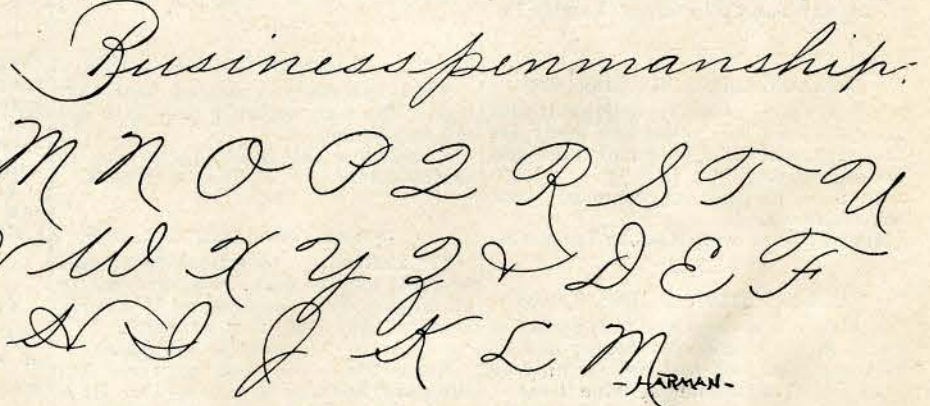 Business penmanship.
M N O P Q R S T U
W X Y Z & D E F
H I J K L M
-HARMAN-